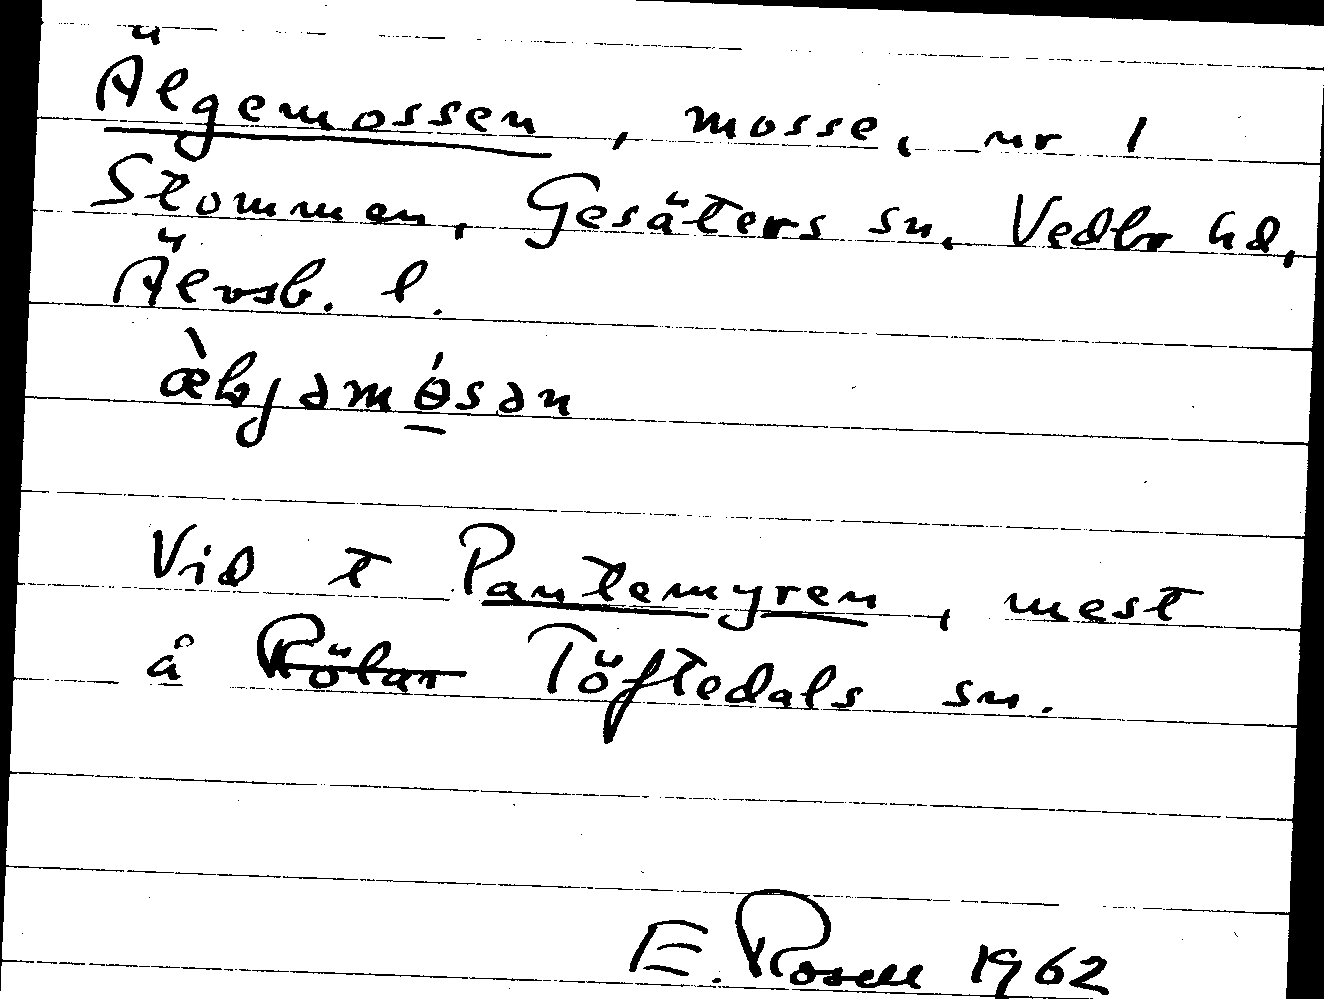 Älgemossen, mosse, nr 1
Stommen, Gesäters sn, Vedbr hd,
Älvsb. l.
Vid t Pantemyren, mest
å Rölar Töftedals sn.
E. Rosell 1962